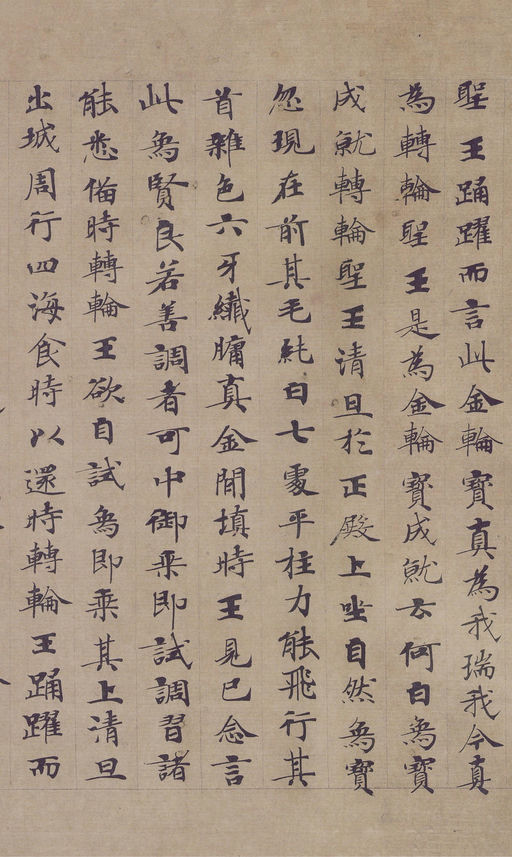 聖王踊躍而言此金輪寶真為我瑞我今真
為轉輪聖王是為金輪寶成就云何白象寶
成就轉輪聖王清旦於正殿上坐自然象寶
忽現在前其毛純白七處平柱力能飛行其
首雜色六牙纖𦟛真金間填時王見已念言
此象賢良若善調者可中御乘即試調習諸
能悉備時轉輪王欲自試象即乘其上清旦
出城周行四海食時以還時轉輪王踊躍而